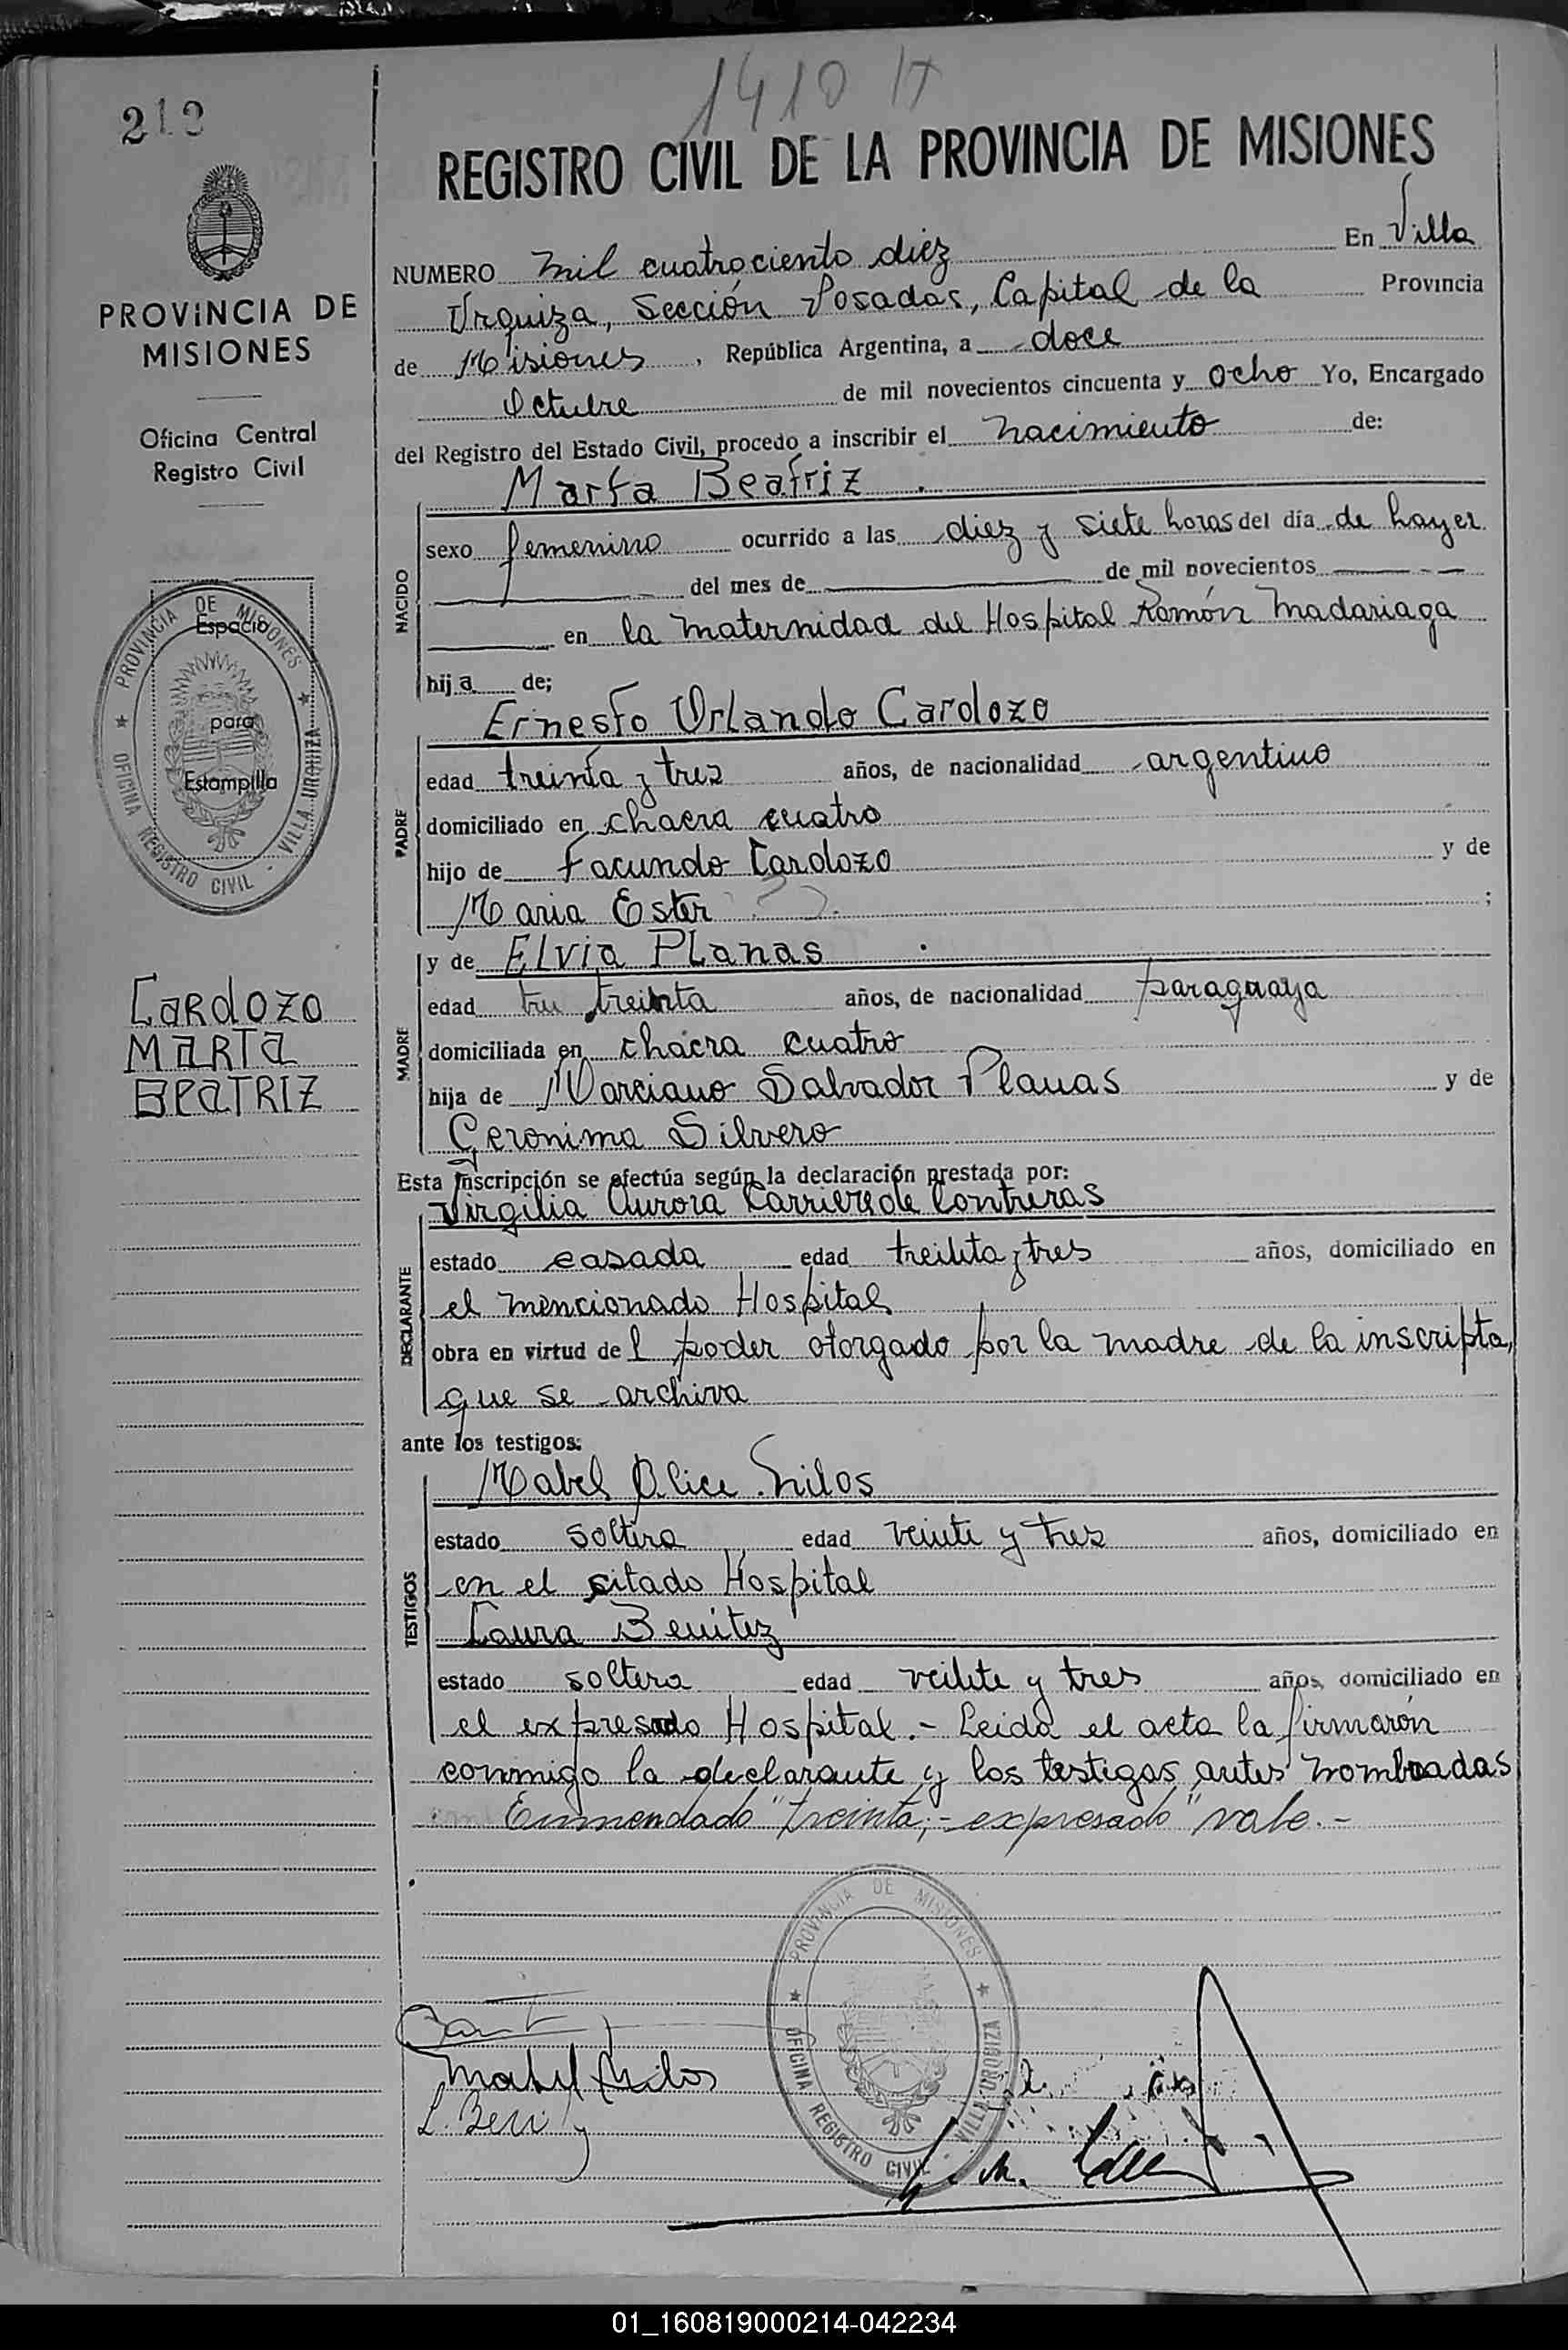 1410 IT
212
REGISTRO CIVIL DE LA PROVINCIA DE MISIONES
PROVINCIA DE
MISIONES
Oficina Central
Registro Civil
PROVINCIA DE MISIONES
OFICINA REGISTRO CIVIL - VILLA URQUIZA
Espacio
para
Estampilla
CARDOZO
MARTA
BEATRIZ
NUMERO mil cuatrociento diez En Villa
Urquiza, Sección Posadas, Capital de la Provincia
de Misiones, República Argentina, a doce
Octubre de mil novecientos cincuenta y ocho Yo, Encargado
del Registro del Estado Civil, procedo a inscribir el nacimiento de:
NACIDO
Marta Beatriz
sexo femenino ocurrido a las diez y siete horas del día de hayer
del mes de de mil novecientos
en la maternidad del Hospital Ramón Madariaga
hija de;
PADRE
Ernesto Orlando Cardozo
edad treinta y tres años, de nacionalidad argentino
domiciliado en chacra cuatro
hijo de Facundo Cardozo y de
Maria Ester ;
MADRE
y de Elvia Planas
edad tre treinta años, de nacionalidad paraguaya
domiciliada en chacra cuatro
hija de Marciano Salvador Planas y de
Geronima Silvero
Esta inscripción se efectúa según la declaración prestada por:
DECLARANTE
Virgilia Aurora de Contreras
estado casada edad treinta y tres años, domiciliado en
el mencionado Hospital
obra en virtud del poder otorgado por la madre de la inscripta,
que se archiva
ante los testigos:
TESTIGOS
Mabel Alice Milos
estado soltera edad veinte y tres años, domiciliado en
en el sitado Hospital
Laura Benitez
estado soltera edad veinte y tres años, domiciliado en
el expresado Hospital.- Leida el acta la firmarón
conmigo la declarante y los testigos antes nombradas
Enmendado "treinta,- expresado" vale.-
PROVINCIA DE MISIONES
OFICINA REGISTRO CIVIL - VILLA URQUIZA
Mabel Milos
L. Benitez
01_160819000214-042234